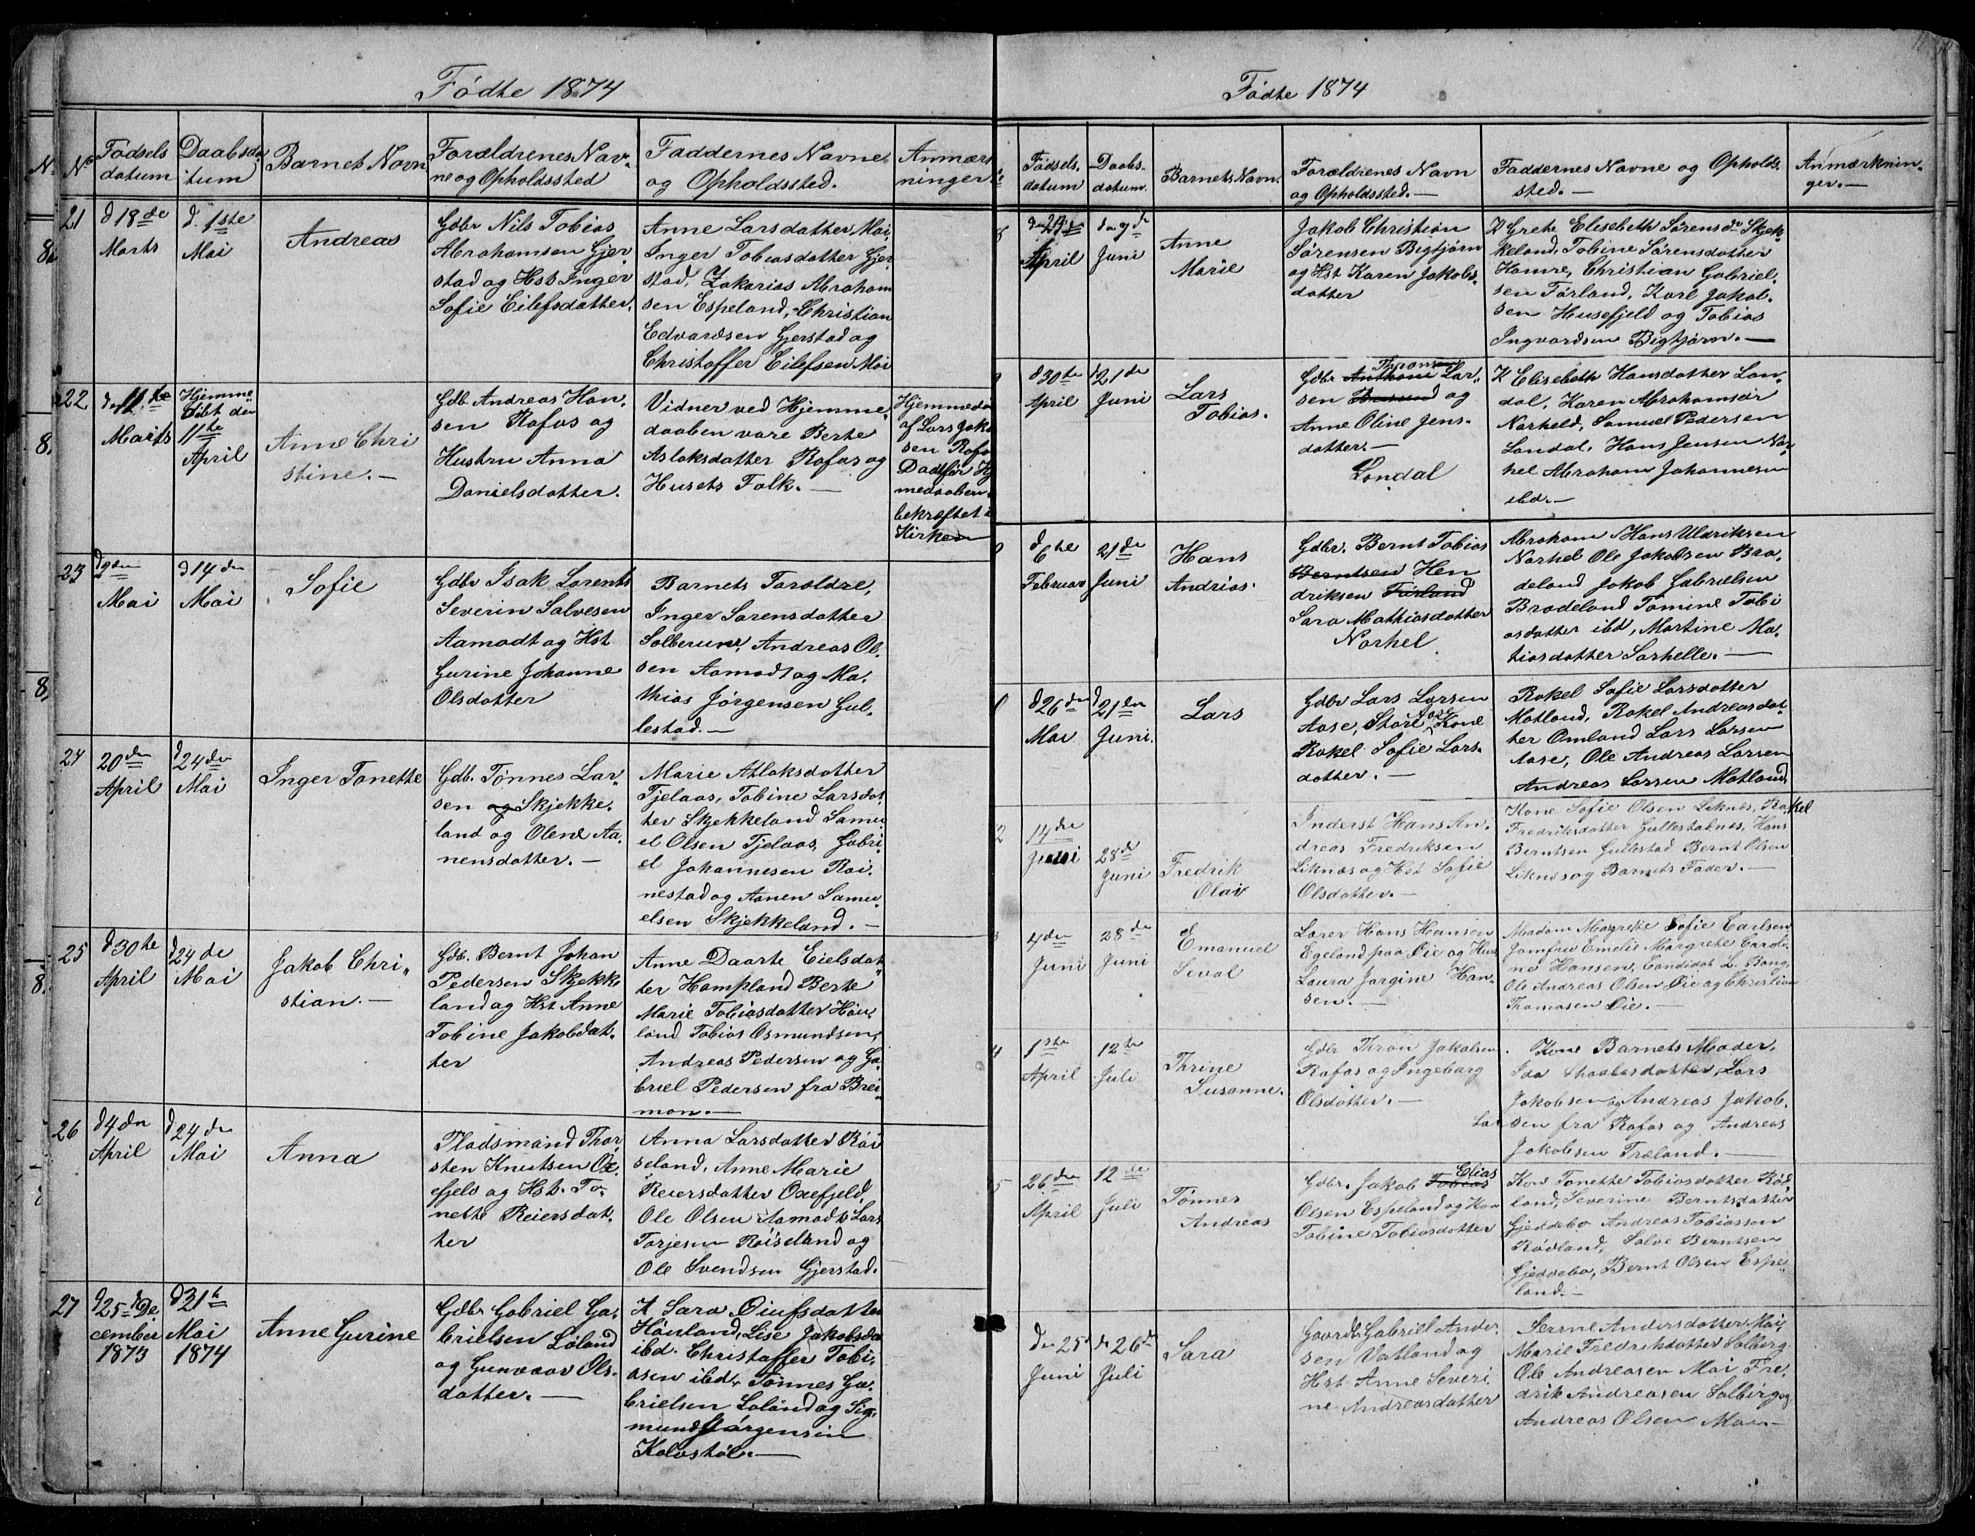 Fødte 1874
No
Fødsels
datum
Daabsda
tum
Barnets Navn
Forældrenes Nav-
ne og Opholdssted
Faddernes Navne
og Opholdssted.
Anmærk
ninger
21
d 18de
Marts
d. 1ste
Mai
Andreas
Gdbr Nils Tobias
Abrahamsen Gjer-
stad og Hst Inger
Sofie Eilefsdatter.
Anne Larsdatter Moi
Inger Tobiasdatter Gjer-
stad, Zakarias Abraham
sen Espeland, Christian
Edvardsen Gjerstad og
Christoffer Eilefsen Moi
22
Marts
Hjemme
døbt den
11te
April
Anne Chri
stine.-
Gdb. Andreas Han-
sen Rafos og
Hustru Anna
Danielsdatter.
Vidner ved Hjemme-
daaben vare Berte
Aslaksdatter Rafos og
Husets Folk.-
Hjemmedøbt
af Lars Jakob
sen Rafos
Daaben
bekræftet i
Kirken
23
d 9de
Mai
d 14de
Mai
Sofie
Gdbr Isak Lorents
Severin Salvesen
Aamodt og Hst
Gurine Johanne
Olsdatter
Barnets Forældre,
Inger Sørensdatter
Andreas Ol-
sen Aamodt og Ma-
thias Jørgensen Gul-
lestad.-
24
20de
April
d 24de
Mai
Inger Tonette
Gdb. Tønnes Lar-
sen og Skjekke-
land og Olene Aa-
nensdatter.-
Marie Atlaksdatter
Fjelaas, Tobine Larsdat-
ter Skjekkeland Samu-
el Olsen Fjelaas, Gabri-
el Johannesen Røi-
nestad og Aanen Samu-
elsen Skjekkeland.-
25
d 30te
April
d 24de
Mai
Jakob Chri-
stian.-
Gdb. Bernt Johan
Pedersen Skjekke
land og Hst Anne
Tobine Jakobsdat-
ter
Anne Daarte Eielsdat
ter Hompland Berte
Marie Tobiasdatter Høi-
land Tobias Osmundsen,
Andreas Pedersen og Ga-
briel Pedersen fra Brei-
mon.-
26
d 4de
April
d 24de
Mai
Anna
Pladsmand Thor-
sten Knutsen Ox-
efjeld og Hst. To-
nette Reiersdat-
ter
Anna Larsdatter Røi
seland, Anne Marie
Reiersdatter Oxefjeld,
Ole Olsen Aamodt Lars
Torjesen Røiseland og
Ole Svendsen Gjerstad.
27
d 25de De
cember
1873
d 31te
Mai
1874
Anne Gurine
Gdbr Gabriel Ga-
brielsen Løland
og Gunvaar Ols-
datter.-
K Sara Oiufsdatter
Høiland, Lise Jakobsda
ibd. Christoffer Tobi-
asen ibd. Tønnes Ga-
brielsen Løland og Sig-
mund Jørgensen
Kolostøl.-
Fødte 1874
Fødsels-
datum
Daabs-
datum.
Barnets Navn.
Forældrenes Navn
og Opholdssted.-
Faddernes Navne og Opholds-
sted.-
Anmærknin-
ger.-
April
den 9de
Juni
Anne
Marie
Jakob Christian
Sørensen Bigtjørn
og Hst Karen Jakobs-
datter
K Grete Elisabeth Sørensdr Skjek-
keland, Tobine Sørensdatter
Hamre, Christian Gabriel-
sen Førland, Karl Jakob-
sen Husefjeld og Tobias
Ingvardsen Bigtjørn.-
d 30te
April
d 21de
Juni
Lars
Tobias.
Thronsen
Gdbr Anthoni Lar-
sen og
Anne Oline Jens-
datter.-
Londal
K Elisabeth Hansdatter Lon-
dal, Karen Abrahamsdr
Narheld, Samuel Pedersen
Londal, Hans Jensen Nar-
hel Abraham Johannesen
ibd.-
d 6te
Februar
21de
Juni
Hans
Andreas.
Gdbr. Bernt Tobias
Berntsen Hen
driksen Førland
Sara Mathiasdatter
Narhel
Abraham Hans Uldriksen
Narhel Ole Jakobsen Bra-
deland Jakob Gabrielsen
Bradeland Tomine Tobi
asdatter ibd, Martine Ma-
tiasdatter Sarhelle.-
d 26de
Mai
d 21de
Juni.
Lars
Gdbr Lars Larsen
Aase, Store Aase Kone
Rakel Sofie Lars-
datter.-
Rakel Sofie Larsdatter
Motland, Rakel Andreasdat-
ter Omland Lars Larsen
Aase, Ole Andreas Larsen
Andreas Larsen Motland
14de
Juni
28de
Juni
Fredrik
Olai
Inderst Hans An-
dreas Fredriksen
Liknes og Hst Sofie
Olsdatter.-
Kone Sofie Olsen Liknes, Rakel
Fredriksdatter Gullestadnes, Hans
Berntsen Gullestad Bernt Olsen
Liknes og Barnets Fader.-
4de
Juni
28de
Juni
Emanuel
Seval
Lærer Hans Hansen
Egeland paa Øie og Hus
Laura Jørgine Han-
sen.-
Madam Margrethe Sofie Carlsen
Jomfru Emelie Margrete Caroli-
ne Hansen, Candidat L. Bang,
Ole Andreas Olsen Øie og Christian
Thomasen Øie.-
1ste
April
12te
Juli
Thrine
Susanne.
Gdbr Thron Jakobsen
Rafos og Ingeborg
Olsdatter.-
Kone Barnets Moder,
Lars
Jakobsen og Andreas Jakob-
sen fra Rafos og Andreas
Jakobsen Træland.-
26de
April
12te
Juli
Tønnes
Andreas
Elias
Gdbr. Jakob Tobias
Olsen Espeland og Kon
Tobine Tobiasdatter
Kon Tonette Tobiasdatter Rød-
land, Severine Berntsdatter
Gjeddebo Andreas Tobiassen
Rødland, Salve Berntsen
Gjeddebo, Bernt Olsen Espe-
land.-
den 25
Juni
den 26de
Juli
Sara
Gaardbr Gabriel Ander-
sen Vatland og
Hst Anne Severi-
ne Andreasdatter
Serine Andersdatter Moi,
Marie Fredriksdatter Solberg
Ole Andreasen Moi Fre-
drik Andreasen Solberg og
Andreas Olsen Moi.-